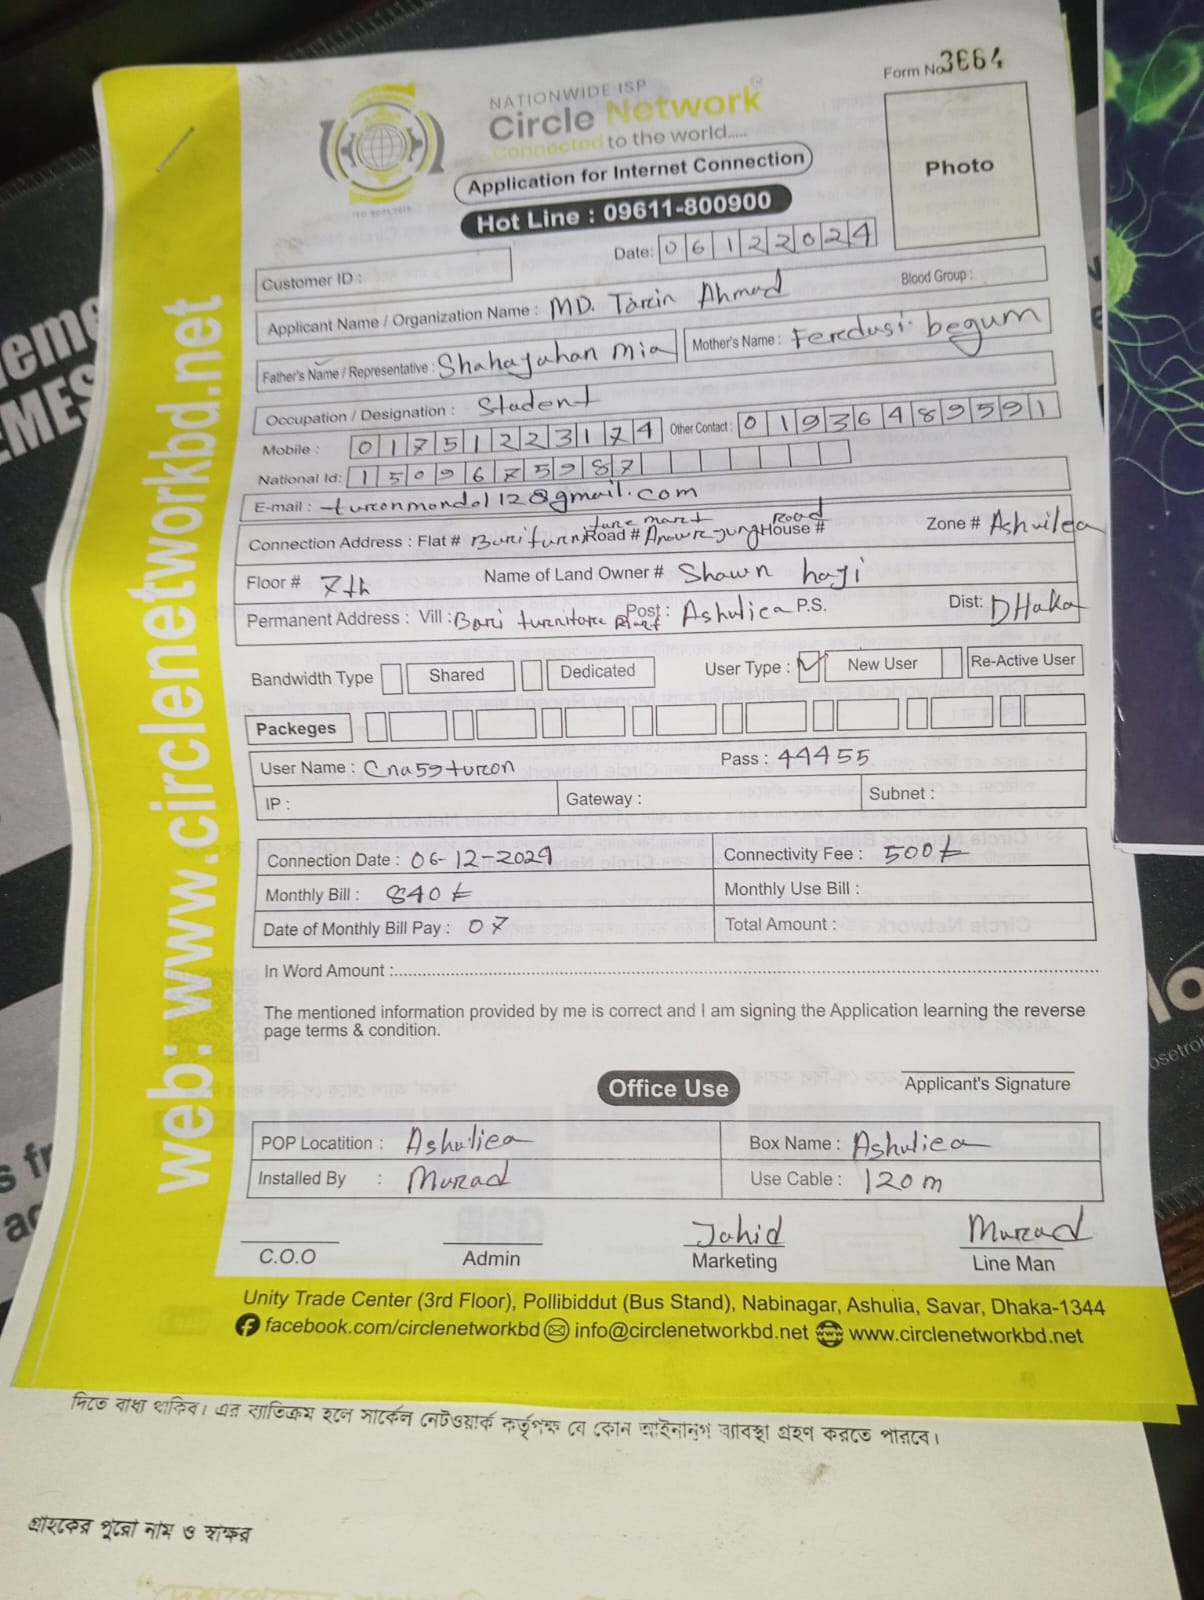 Form No 3664
NATIONWIDE ISP
Circle Network
Connected to the world.....
Application for Internet Connection
Hot Line : 09611-800900
Photo
Date: 06122024
Customer ID :
Applicant Name / Organization Name : MD. Tarcin Ahmad
Blood Group :
Father's Name / Representative : Shahajahan mia
Mother's Name : Feredusi begum
Occupation / Designation : Student
Mobile : 01751223174 Other Contact : 01936489591
National Id: 1509675987
E-mail : turconmondol12@gmail.com
Connection Address : Flat # Road # House # Road Zone #
Floor # 7th Name of Land Owner # Shawn hagi
Permanent Address : Vill : Bari Post : Ashulica P.S. Dist: DHaka
Bandwidth Type Shared Dedicated User Type : New User Re-Active User
Packeges
User Name : Cna59turcon Pass : 44455
IP : Gateway : Subnet :
Connection Date : 06-12-2024 Connectivity Fee : 500 ৳
Monthly Bill : 840 ৳ Monthly Use Bill :
Date of Monthly Bill Pay : 07 Total Amount :
In Word Amount :
The mentioned information provided by me is correct and I am signing the Application learning the reverse
page terms & condition.
Applicant's Signature
Office Use
POP Locatition : Ashuliea Box Name : Ashuliea
Installed By : Murad Use Cable : 120 m
Jahid Murad
C.O.O Admin Marketing Line Man
Unity Trade Center (3rd Floor), Pollibiddut (Bus Stand), Nabinagar, Ashulia, Savar, Dhaka-1344
facebook.com/circlenetworkbd info@circlenetworkbd.net www.circlenetworkbd.net
web: www.circlenetworkbd.net
দিতে বাধ্য থাকিব। এর ব্যতিক্রম হলে সার্কেল নেটওয়ার্ক কর্তৃপক্ষ যে কোন আইনানুগ ব্যবস্থা গ্রহণ করতে পারবে।
গ্রাহকের পুরো নাম ও স্বাক্ষর